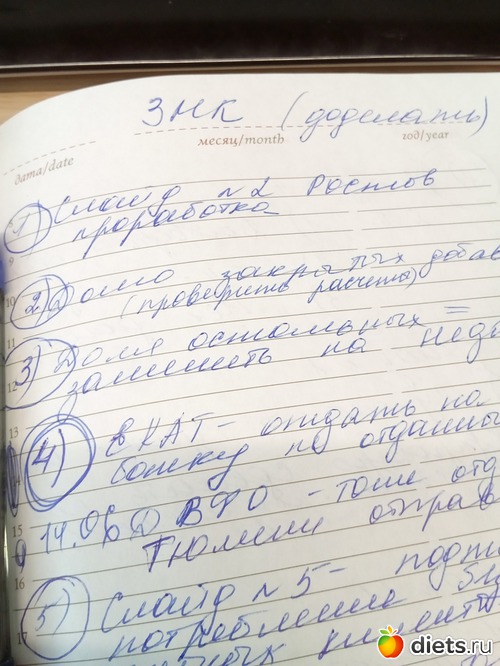 ЗНК (доделать)
месяц/month год/year
дата/date
1) Слайд №2 Ростов
проработка
9
10 2) закрытых добав
(проверить расчёта)
11
3) Доля остальных =
12 заменить на
13
4) ЕКАТ - отдать на
по отданны
15 14.06 ВФО - тоже отд
Тюмени отправ
16
5) Слайд №5 -
17
diets.ru